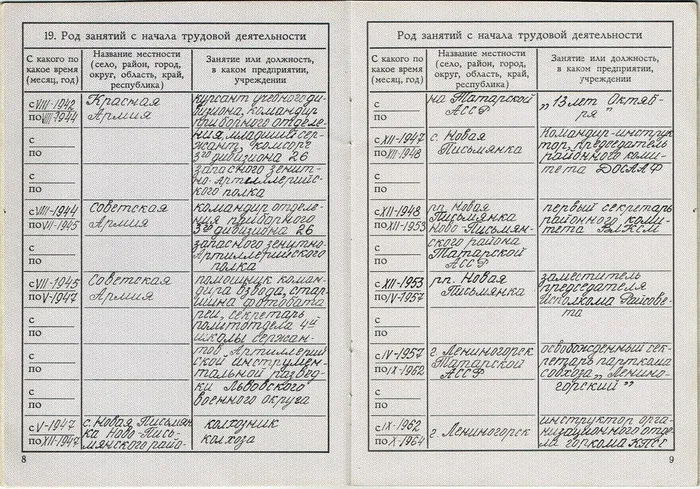 19. Род занятий с начала трудовой деятельности
С какого по какое время (месяц, год)
Название местности (село, район, город, округ, область, край, республика)
Занятие или должность, в каком предприятии, учреждении
с VIII-1942
по VIII-1944
Красная
Армия
курсант учебного ди-
визиона, командир
приборного отделе-
ния, младший сер-
жант, комсорг
3го дивизиона 26
запасного зенит-
но-Артиллерийс-
кого полка
с
по
с
по
с VIII-1944
по VII-1945
Советская
Армия
командир отделе-
ния приборного
3го дивизиона 26
запасного зенитно-
Артиллерийского
полка
с
по
с VIII-1945
по V-1947
Советская
Армия
помощник коман-
дира взвода, стар-
шина фотобата-
реи, секретарь
политотдела 4ой
школы сержан-
тов Артиллерий
ской инструмен-
тальной развед-
ки Львовского
военного округа
с
по
с
по
с
по
с V-1947
по XII-1947
с. Новая Письмян-
ка Ново-Пись-
мянского райо-
колхозник
колхоза
8
19. Род занятий с начала трудовой деятельности
С какого по какое время (месяц, год)
Название местности (село, район, город, округ, область, край, республика)
Занятие или должность, в каком предприятии, учреждении
с
по
на Татарской
АССР
„13 лет Октяб-
ря"
с XII-1947
по XII-1948
с. Новая
Письмянка
Командир-инструк
тор, председатель
районного коми-
тета ДОСААФ
с
по
с XII-1948
по XII-1953
рп. Новая
Письмянка
Ново Письмян-
ского района
Татарской
АССР
первый секретарь
районного коми-
тета ВЛКСМ
с
по
с XII-1953
по IV-1957
рп. Новая
Письмянка
заместитель
председателя
Исполкома Райсове-
та
с
по
с IV-1957
по IX-1962
г. Лениногорск
Татарской
АССР
освобожденный сек-
ретарь парткома
совхоза „Ленино-
горский"
с
по
с IX-1962
по X-1964
г. Лениногорск
инструктор орга-
низационного отде-
ла горкома КПСС
9